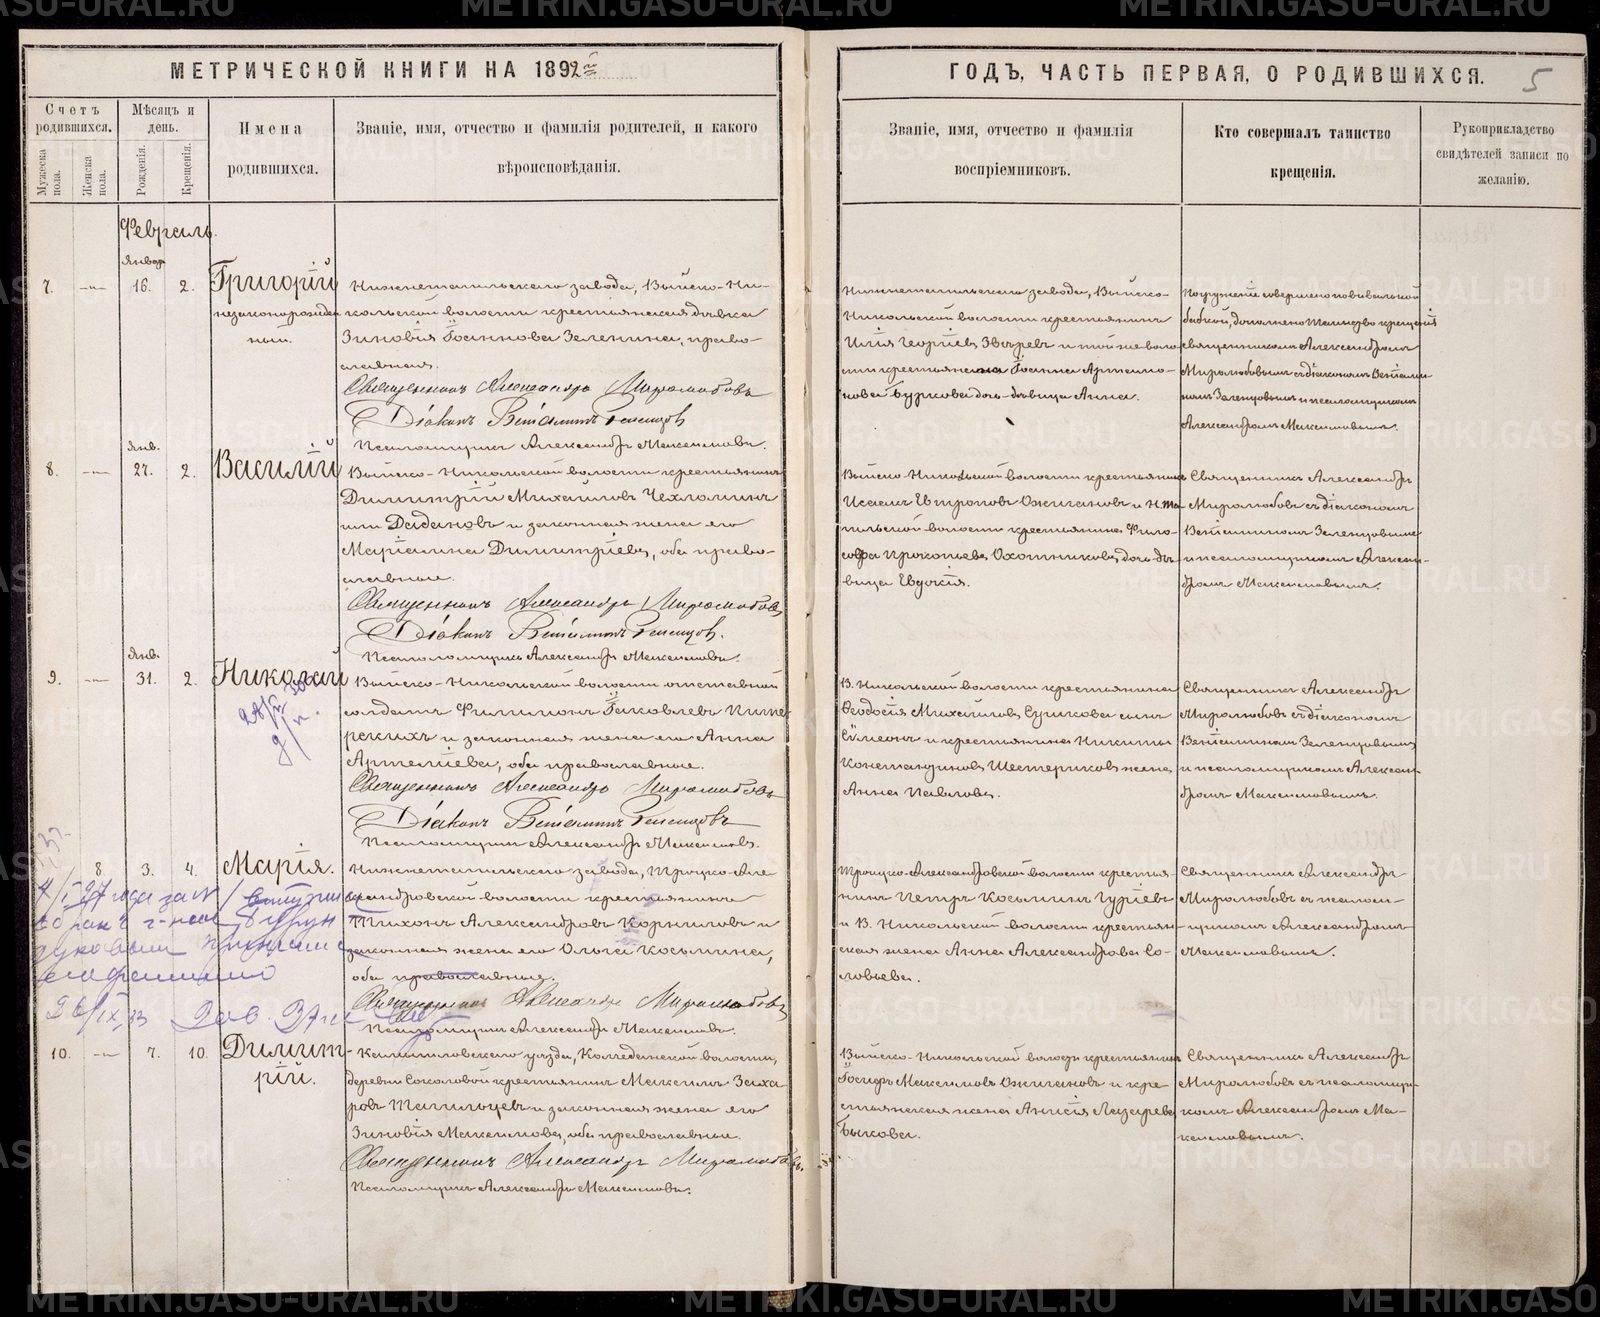 МЕТРИЧЕСКОЙ КНИГИ НА 1892 й
ГОДЪ, ЧАСТЬ ПЕРВАЯ, О РОДИВШИХСЯ.
5
Счетъ родившихся.
Мужеска пола.
Женска пола.
Мѣсяцъ и день.
Рожденія.
Крещенія.
Имена
родившихся.
Званіе, имя, отчество и фамилія родителей, и какого
вѣроисповѣданія.
Званіе, имя, отчество и фамилія
воспріемниковъ.
Кто совершалъ таинство
крещенія.
Рукоприкладство
свидѣтелей записи по
желанію.
Февраль.
Январ
7. 16. 2. Григорій
незаконорожден
ный.
Нижнетагильскаго завода, Выйско-Ни-
кольской волости крестьянская дѣвка
Зиновія Іоаннова Зеленина, право-
славная.
Священникъ Александръ Миролюбовъ
Діаконъ Веніаминъ Зеленцовъ
Псаломщикъ Александръ Максимовъ.
Нижнетагильскаго завода, Выйско-
Никольской волости крестьянинъ
Илія Георгіевъ Звѣревъ и той же воло-
сти крестьянина Іоанна Артемо-
нова Буркова дочь-дѣвица Анна.
Погруженіе совершено повивальной
бабкой, дополнено Таинство крещенія
священникомъ Александромъ
Миролюбовымъ съ діакономъ Веніами-
номъ Зеленцовымъ и псаломщикомъ
Александромъ Максимовымъ.
Янв.
8. 27. 2. Василій
Выйско-Никольской волости крестьянинъ
Димитрій Михайловъ Чехломинъ
или Дадановъ и законная жена его
Маріанна Димитріева, оба право-
славные.
Священникъ Александръ Миролюбовъ
Діаконъ Веніаминъ Зеленцовъ.
Псаломщикъ Александръ Максимовъ.
Выйско-Никольской волости крестьянинъ
Исаакъ Ожигановъ и Н.Та-
гильской волости крестьянина Фило-
софа Прокопьева Охотникова дочь дѣ-
вица Евдокія.
Священникъ Александръ
Миролюбовъ съ діакономъ
Веніаминомъ Зеленцовымъ
и псаломщикомъ Алексан-
дромъ Максимовымъ.
Янв.
9. 31. 2. Николай
Выйско-Никольской волости отставной
солдатъ Филимонъ Іаковлевъ
и законная жена его Анна
Артеміева, оба православные.
Священникъ Александръ Миролюбовъ
Діаконъ Веніаминъ Зеленцовъ
Псаломщикъ Александръ Максимовъ.
В. Никольской волости крестьянина
Ѳеодосія Михайлова Сушкова сынъ
Сѵмеонъ и крестьянина Никиты
Константинова Шестерикова жена
Анна Павлова.
Священникъ Александръ
Миролюбовъ съ діакономъ
Веніаминомъ Зеленцовымъ
и псаломщикомъ Алексан-
дромъ Максимовымъ.
8 3. 4. Марія.
Нижнетагильскаго завода, Троицко-Але-
ксандровской волости крестьянинъ
Тихонъ Александровъ Корниловъ и
законная жена его Ольга Косьмина,
оба православные.
Священникъ Александръ Миролюбовъ
Псаломщикъ Александръ Максимовъ.
Троицко-Александровской волости крестья-
нинъ Петръ Косьминъ Гуріевъ
и В. Никольской волости крестьян-
ская жена Анна Александрова Со-
ловьева.
Священникъ Александръ
Миролюбовъ съ псалом-
щикомъ Александромъ
Максимовымъ.
10. 7. 10. Димит-
рій.
Камышловскаго уѣзда, Колчеданской волости,
деревни Соколовой крестьянинъ Максимъ Заха-
ровъ Тагильцевъ и законная жена его
Зиновія Максимова, оба православные.
Священникъ Александръ Миролюбовъ.
Псаломщикъ Александръ Максимовъ.
Выйско-Никольской волости крестьянинъ
Іосифъ Максимовъ Ожигановъ и кре-
стьянская жена Анисія Лазарева
Быкова.
Священникъ Александръ
Миролюбовъ съ псаломщи-
комъ Александромъ Ма-
ксимовымъ.
METRIKI.GASO-URAL.RU